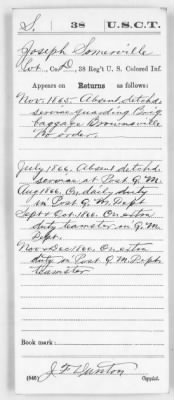 S. 38 U.S.C.T.
Joseph Somerville
Pvt., Co. D, 38 Reg't U. S. Colored Inf.
Appears on Returns as follows:
Nov. 1865. Absent detchd.
service guarding Brig.
baggage Brownsville
No order.
July 1866. Absent detchd.
service at Post Q. M.
Aug 1866. On daily duty
in Post Q. M. Dept
Sept & Oct. 1866. On extra
duty teamster in Q. M.
Dept.
Nov & Dec 1866. On extra
duty in Post Q. M. Dept.
teamster
Book mark:
(546)
Copyist.